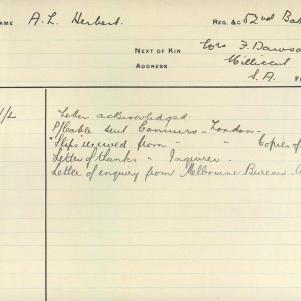 NAME A. L. Herbert. REG. &c 52nd Ba
NEXT OF KIN Mrs F. Dawso
ADDRESS Millicent
S.A.
1/2 Letter acknowledged.
P/Cable sent Commrs - London.
"Slips received from " " Copies of
Letter of thanks " Inquirer.
Letter of enquiry from Melbourne Bureau.